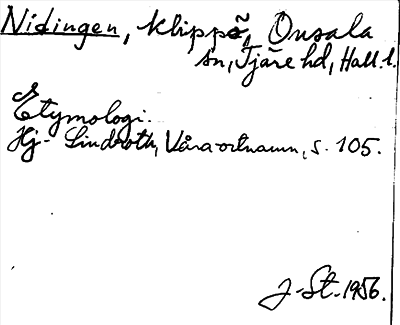 Nidingen, klippö, Onsala
sn, Fjäre hd, Hall. l.
Etymologi.
Hj. Lindroth, Våra ortnamn, s. 105.
J. St. 1956.